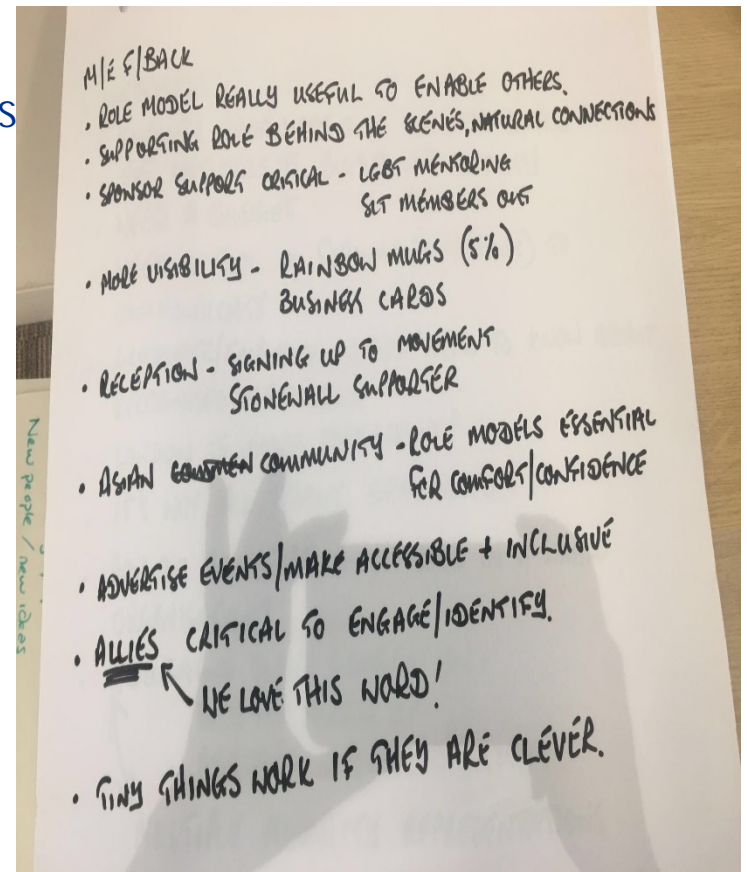 M/E F/BACK
• ROLE MODEL REALLY USEFUL TO ENABLE OTHERS.
• SUPPORTING ROLE BEHIND THE SCENES, NATURAL CONNECTIONS
• SPONSOR SUPPORT CRITICAL - LGBT MENTORING
SLT MEMBERS OUT
• MORE VISIBILITY - RAINBOW MUGS (5%)
BUSINESS CARDS
• RECEPTION - SIGNING UP TO MOVEMENT
STONEWALL SUPPORTER
• ASIAN COMMUNITY - ROLE MODELS ESSENTIAL
FOR COMFORT/CONFIDENCE
• ADVERTISE EVENTS/MAKE ACCESSIBLE + INCLUSIVE
• ALLIES CRITICAL TO ENGAGE/IDENTIFY.
WE LOVE THIS WORD!
• TINY THINGS WORK IF THEY ARE CLEVER.
New people / new ideas
S